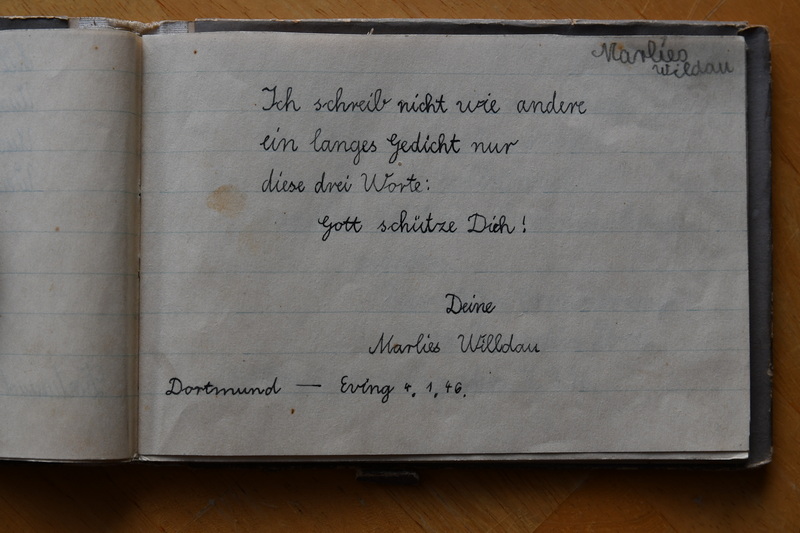 Marlies
Wildau
Ich schreib nicht wie andere
ein langes Gedicht nur
diese drei Worte:
Gott schütze Dich!
Deine
Marlies Willdau
Dortmund — Eving 4. 1. 46.